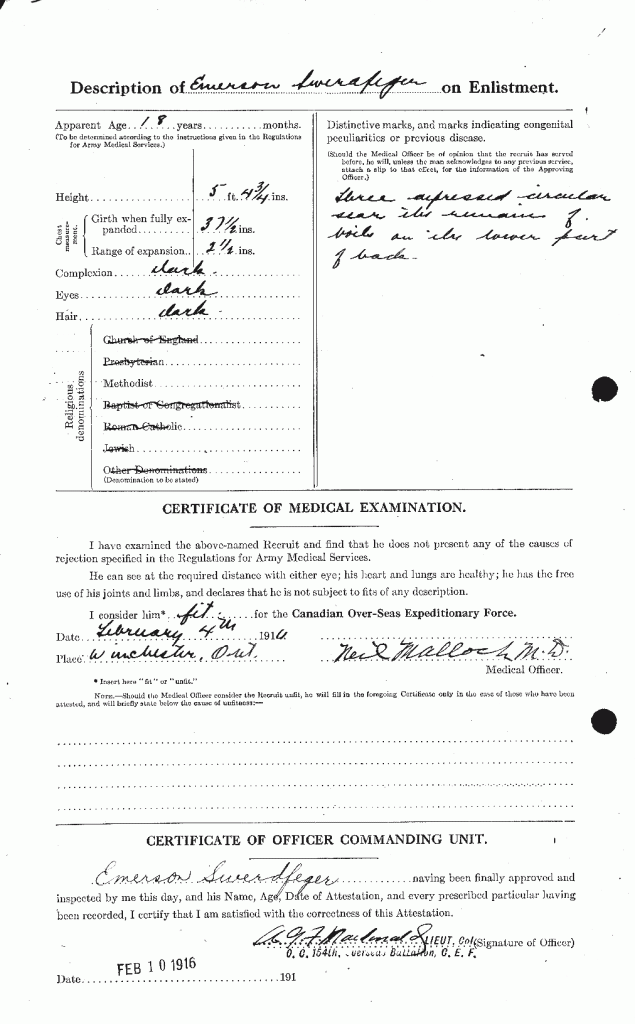 Description of Emerson Swerdfeger on Enlistment.
Apparent Age 18 years months.
(To be determined according to the instructions given in the Regulations
for Army Medical Services.)
Height 5 ft. 4 3/4 ins.
Chest measurement.
Girth when fully ex-
panded 37 1/2 ins.
Range of expansion 2 1/2 ins.
Complexion dark
Eyes dark
Hair dark
Religious denominations
Church of England
Presbyterian
Methodist
Baptist or Congregationalist
Roman Catholic
Jewish
Other Denominations
(Denomination to be stated)
Distinctive marks, and marks indicating congenital
peculiarities or previous disease.
(Should the Medical Officer be of opinion that the recruit has served
before, he will, unless the man acknowledges to any previous service,
attach a slip to that effect, for the information of the Approving
Officer.)
three depressed circular
scar the remain of
boils on the lower part
of back.
CERTIFICATE OF MEDICAL EXAMINATION.
I have examined the above-named Recruit and find that he does not present any of the causes of
rejection specified in the Regulations for Army Medical Services.
He can see at the required distance with either eye; his heart and lungs are healthy; he has the free
use of his joints and limbs, and declares that he is not subject to fits of any description.
I consider him* fit for the Canadian Over-Seas Expeditionary Force.
Date February 4th 1916
Place Winchester, Ont. Neil Malloch M.D.
Medical Officer.
* Insert here "fit" or "unfit."
NOTE.—Should the Medical Officer consider the Recruit unfit, he will fill in the foregoing Certificate only in the case of those who have been
attested, and will briefly state below the cause of unfitness:—
CERTIFICATE OF OFFICER COMMANDING UNIT.
Emerson Swerdfeger having been finally approved and
inspected by me this day, and his Name, Age, Date of Attestation, and every prescribed particular having
been recorded, I certify that I am satisfied with the correctness of this Attestation.
LIEUT. Col (Signature of Officer)
O. C. 154th, Overseas Battalion, C. E. F.
FEB 10 1916
Date 191